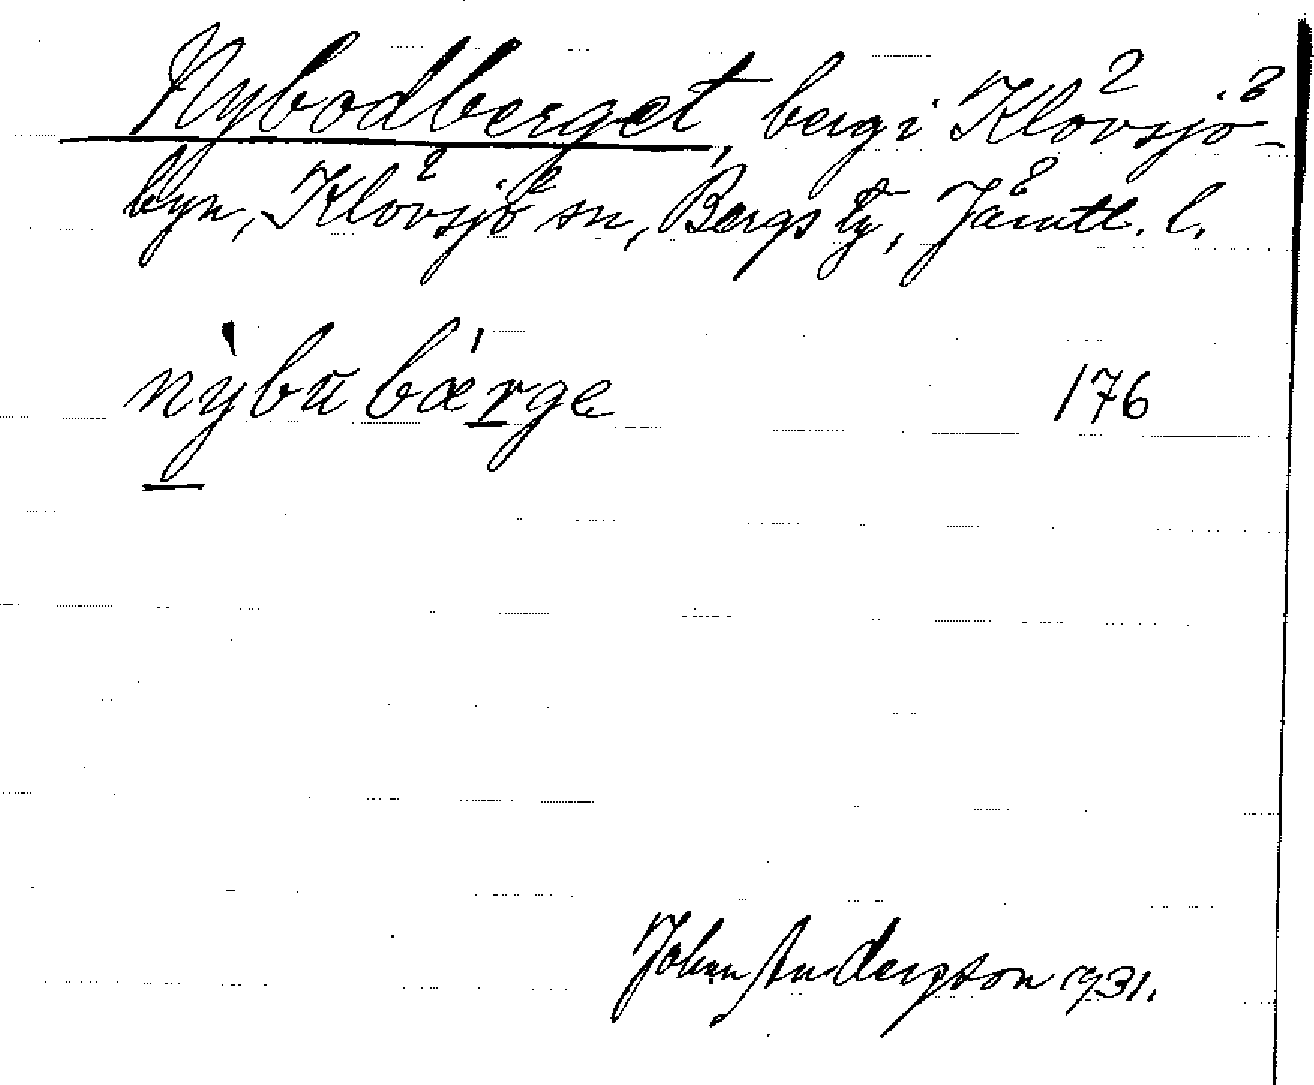 Nybodberget, berg i Klövsjö-
byn, Klövsjö sn, Bergs tg, Jämtl. l.
nỳbu bǽrge 176
Johan Anderson 1931.